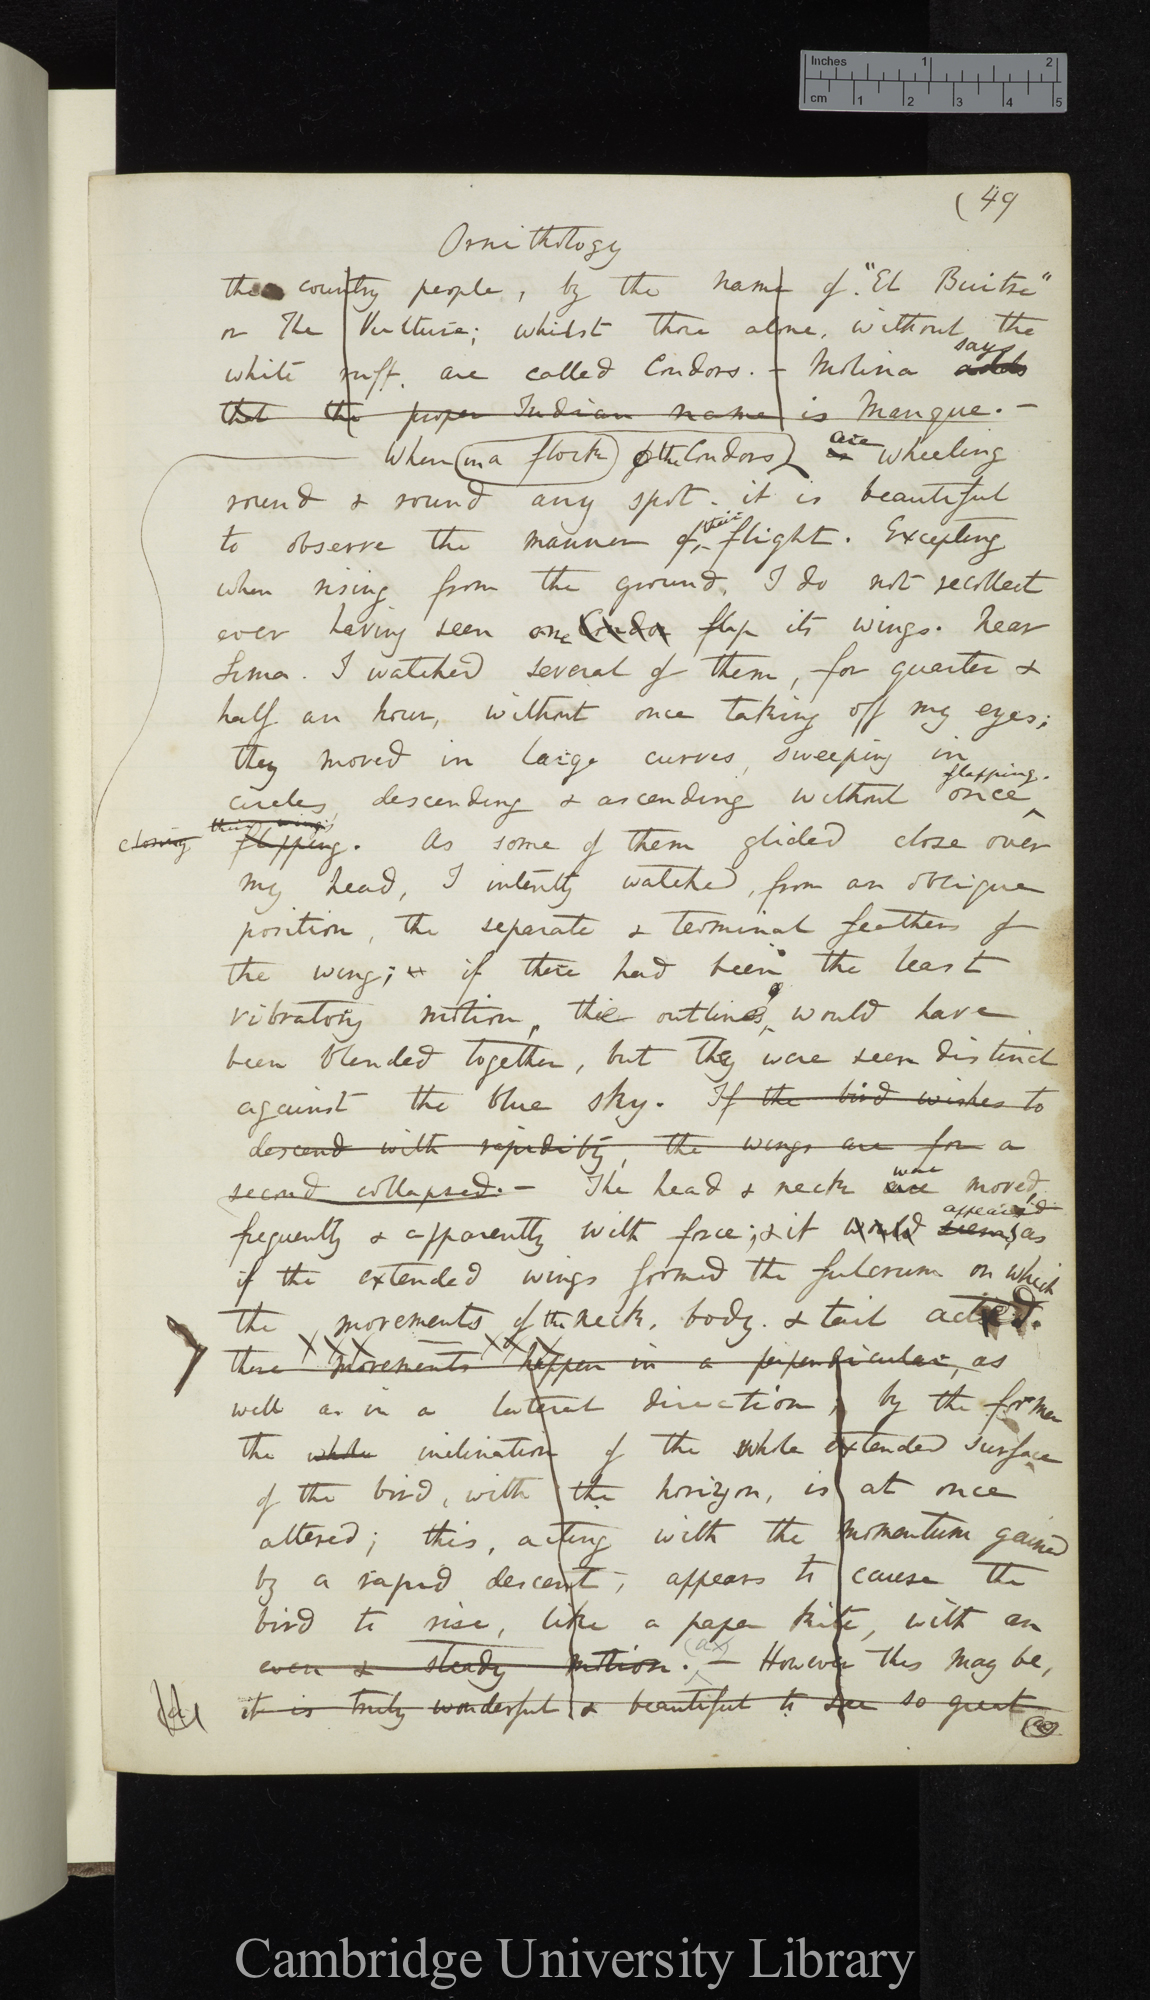 Inches 1 2
cm 1 2 3 4 5
(49
Ornithology
the country people, by the name of "El Buitre"
or The Vulture; whilst those alone, without the
says
white ruff, are called Condors. - Molina adds
that the proper Indian name is Manque. -
When (in a flock) of the Condors) are is wheeling
round & round any spot. it is beautiful
to observe the manner of their flight. Excepting
when rising from the ground, I do not recollect
ever having seen one Condor flap its wings. Near
Lima. I watched several of them, for quarter &
half an hour, without once taking off my eyes;
they moved in large curves, sweeping in
flapping.
circles, descending & ascending without once
their wings
closing flapping. As some of them glided close over
my head, I intently watched, from an oblique
position, the separate & terminal feathers of
the wing; & if there had been the least
vibratory motion, the outlines, would have
been blended together, but they were seen distinct
against the blue sky. If the bird wishes to
descend with rapidity, the wings are for a
second collapsed. - The head & neck were are moved
appeared
frequently & apparently with force; & it would seems as
if the extended wings formed the fulcrum on which
the movements of the neck, body. & tail acted.
these movements happen in a perpendicular, as
well as in a lateral direction; by the former
the whole inclination of the whole extended surface
of the bird, with the horizon, is at once
altered; this, acting with the momentum gained
by a rapid descent, appears to cause the
bird to rise, like a paper kite, with an
even & steady motion. - However this may be,
it is truly wonderful & beautiful to see so great
Cambridge University Library